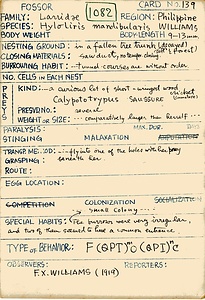 FOSSOR 1082 CARD No. 139
FAMILY: Larridae REGION: Philippine
SPECIES: Hyloliris mandibularis WILLIAMS
BODY WEIGHT BODY LENGTH 9-13 mm
NESTING GROUND: in a fallen tree trunk (decayed)
CLOSING MATERIALS: sawdust, no tempo
BURROWING HABIT: tunnel courses were without order
NO. CELLS in EACH NEST
PREYS KIND: a curious lot of short-winged wood cricket
Calyptotrypus SAUSSURE
PREYS/NO. several
WEIGHT or SIZE: comparatively larger than herself
PARALYSIS: MAX. DUR.
STINGING MALAXATION AMPUTATION
TRANSP. MEOD: flyinto one of the holes with her prey
GRASPING: beneath her
ROUTE:
EGG LOCATION:
COMPETITION COLONIZATION SOCIALIZATION
small colony
SPECIAL HABITS: The burrows were very irregular,
and two of them seemed to have a common entrance.
TYPE of BEHAVIOR:
OBSERVERS: REPORTERS:
F.X. WILLIAMS (1919)